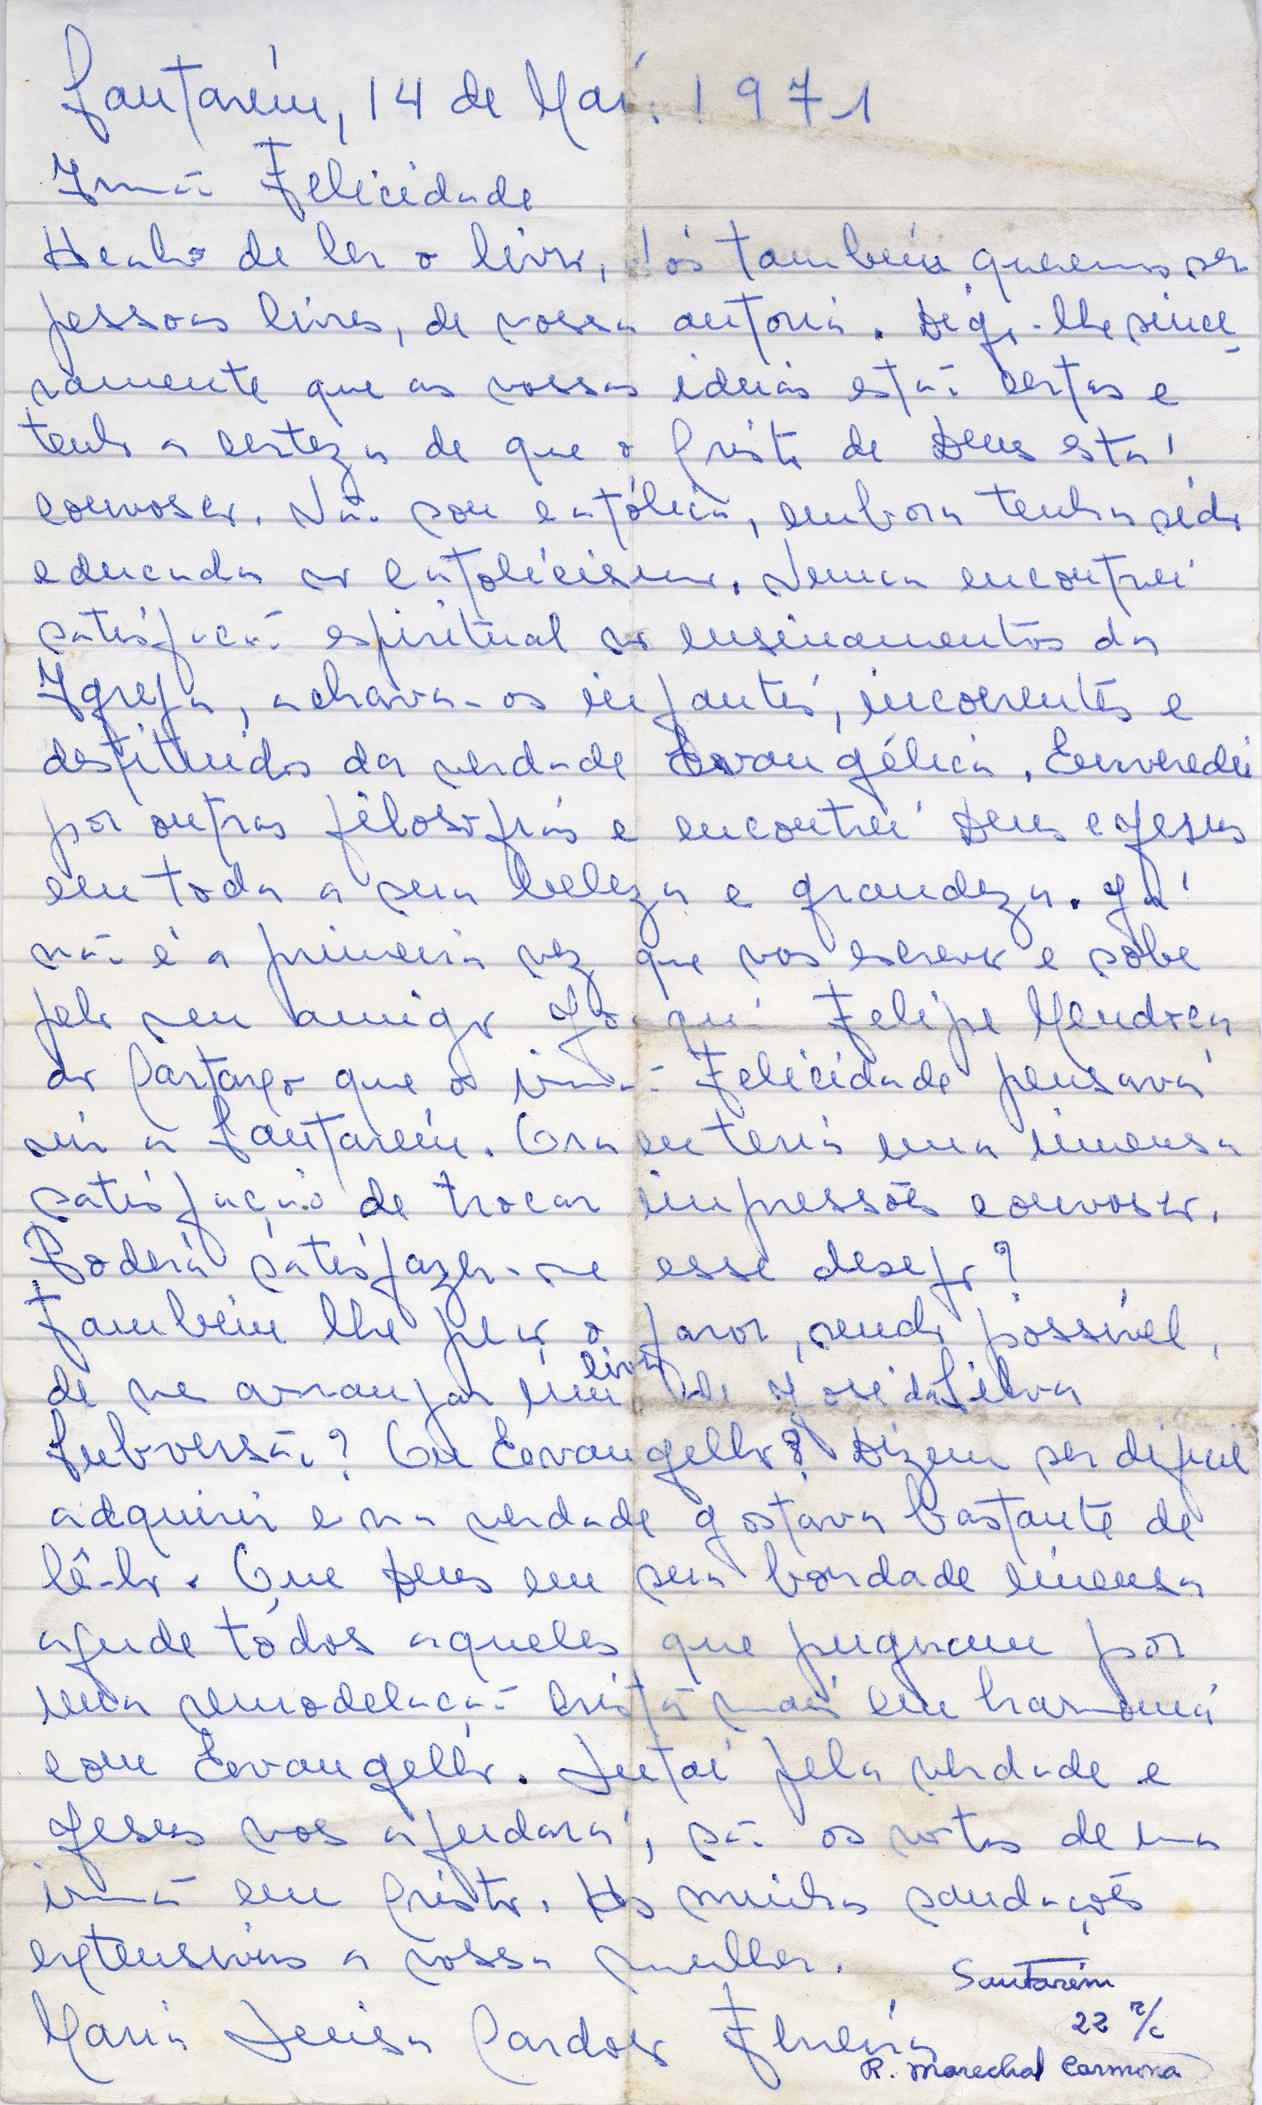 Santarém, 14 de Mai. 1971
Irmão Felicidade
Acabo de ler o livro, Nós também queremos ser
pessoas livres, de vossa autoria. Digo-lhe since
ramente que as vossas ideias estão certas e
tenho a certeza de que o Cristo de Deus está
convosco. Não sou católica, embora tenha sido
educada no Catolicismo. Nunca encontrei
satisfação espiritual no ensinamentos da
Igreja, achava-os infantis, incoerentes e
destituídos da verdade Evangélica. Enveredei
por outras filosofias e encontrei Deus e Jesus
em toda a sua beleza e grandeza. Já
não é a primeira vez que vos escrevo e sobe
pelo seu amigo Joaquim Felipe Mendroca
do Cartaxo que o irmão Felicidade pensava
vir a Santarém. Ora eu teria uma imensa
satisfação de trocar impressões convosco.
Poderá satisfazer-me esse desejo?
Também lhe peço o favor, sendo possível,
de me arranjar um livro de José da Silva
Subversão? Ou Evangelho? Dizem ser difícil
adquirir e na verdade gostava bastante de
lê-lo. Que Deus em sua bondade imensa
ajude todos aqueles que pugnam por
uma remodelação cristã mais em harmonia
com Evangelho. Lutai pela verdade e
Jesus vos ajudará, são os votos de uma
irmã em Cristo. As minhas saudações
extensivas a vossa mulher.
Maria Luisa Cardoso
Santarém
22 r/c
R. Marechal Carmona